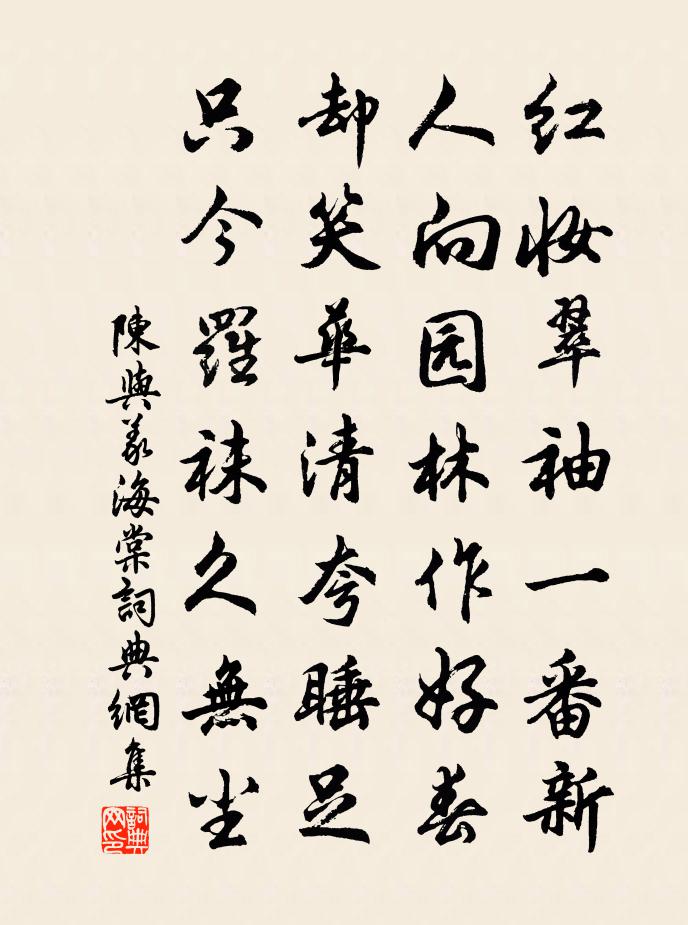 红妆翠袖一番新
人向园林作好春
却笑華清夸睡足
只今羅袜久無尘
陳與义海棠詞典網集
詞典网印